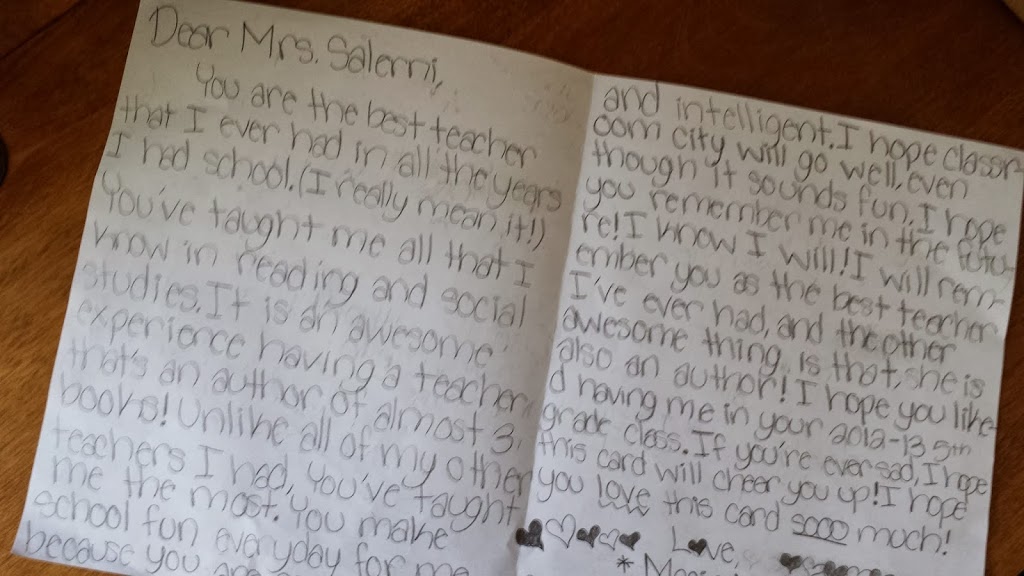 Dear Mrs. Salerni,
You are the best teacher
that I ever had in all the years
I had school. (I really mean it!)
You've taught me all that I
know in reading and social
studies. It is an awesome
experience having a teacher
that's an author of almost 3
books! Unlike all of my other
teachers I had, you've taught
me the most. You make
school fun everyday for me
because you are
and intelligent. I hope classr-
oom city will go well, even
though it sounds fun. I hope
you remember me in the futu-
re! I know I will! I will rem-
ember you as the best teacher
I've ever had, and the other
awesome thing is that, she is
also an author! I hope you like-
d having me in your 2012-13 5th
grade class. If you're ever sad, I hope
this card will cheer you up! I hope
you love this card sooo much!
Love,